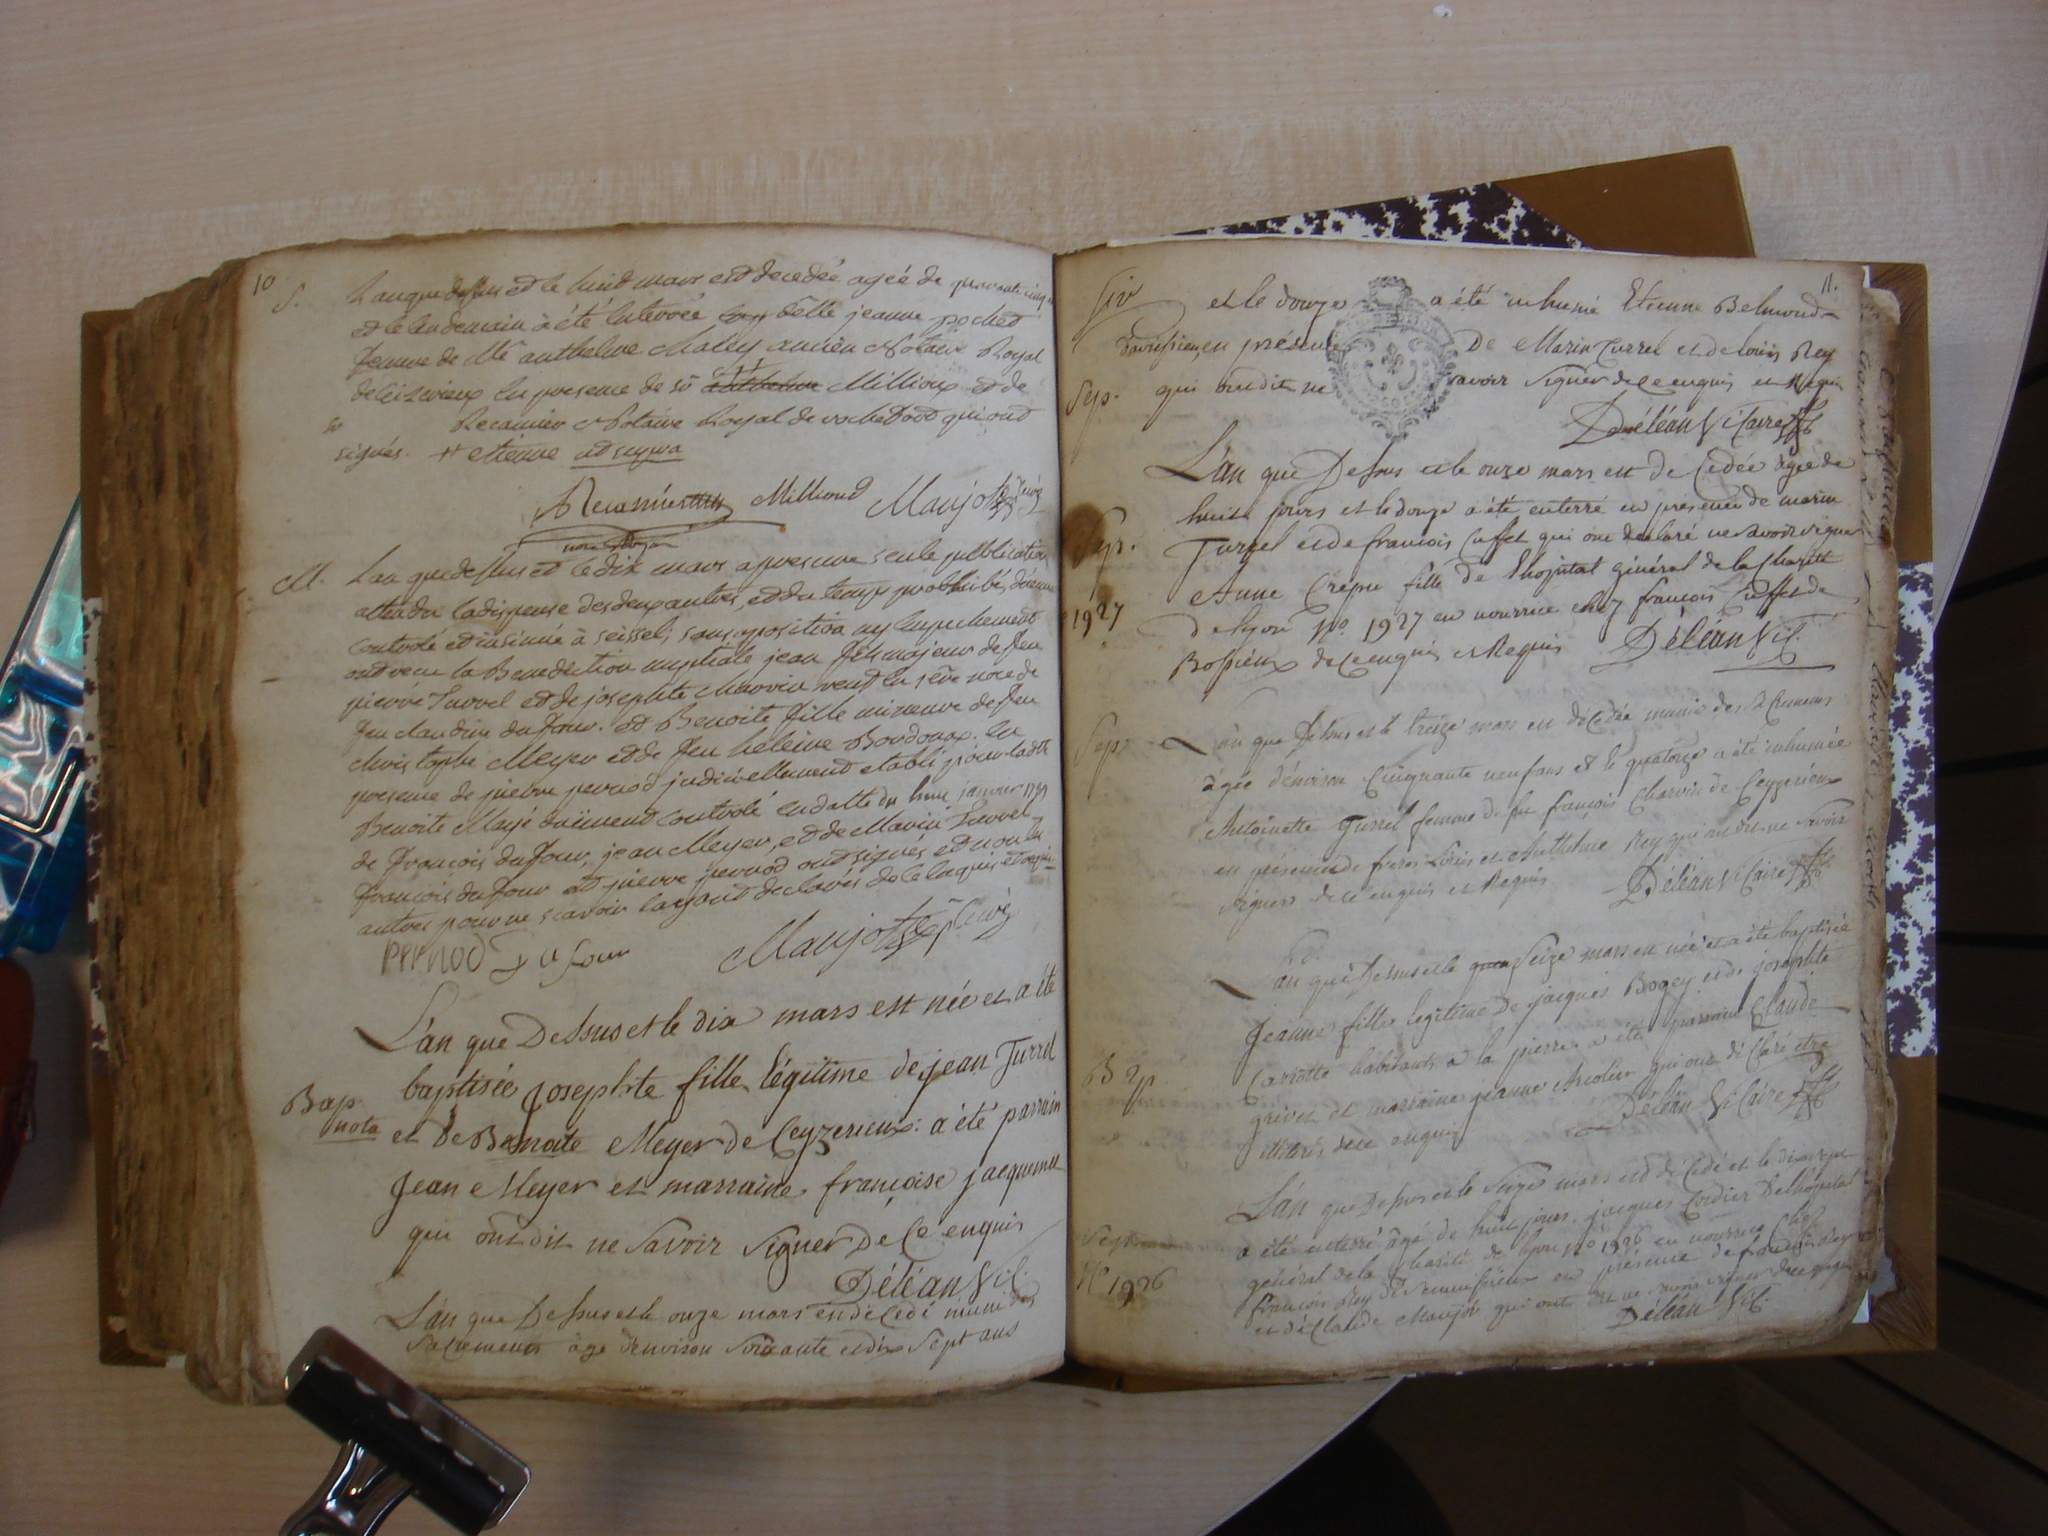 10
S. L'an que dessus et le huit mars est decedée agée de quarante cinq
et le lendemain à été enterrée delle jeanne pochet
femme de Me anthelme Maley ancien Notaire Royal
de Ceizerieux En presence de sr Millioux et de
sr Recamier Notaire Royal de rochefort qui ont
signés. ++ etienne
Recamier Milliond Maujot Curé
no.re Royal
M. L'an que dessus et le dix mars apres une seule publication
attendu la dispense des deux autres, et du temps prohibé,
controlé et insinué à seissel; sans opposition ny Empechement
ont recu la Benediction nuptiale jean fils majeur de feu
pierre Turrel et de josephte Charvin veuf En
feu claudine dufour. et Benoite fille mineure de feu
christophe Meyer et de feu heleine Bordoux. En
presence de pierre pernod judiciellement etabli pour ladte
Benoite controlé en datte du janvier
de françois dufour, jean Meyer, et de Marin Turrel,
françois dufour et pierre pernod ont signés et non les
autres pour ne scavoir de ce Enquis et requis
PERNOD Du four Maujot Curé
L'an que Dessus et le dix mars est née et a été
Bap. baptisée Josephte fille légitime de jean Turrel
nota et de Benoite Meyer de Ceyzerieux: a été parrain
Jean Meyer et marraine françoise jacquemet
qui ont dit ne Savoir Signer De Ce enquis
Déléan Vic.
L'an que Dessus et le onze mars est décedé muni des
Sacrements âgé d'environ Soixante et dix Sept ans
11.
et le douze a été inhumé Etienne Belmond
en présence De Marin Turrel et de Louis Rey
Sep. qui ont dit ne savoir Signer de ce enquis et Requis
Déléan Vicaire
L'an que Dessus et le onze mars est De Cedée âgée de
huit jours et le douze a été enterré en présence de marin
Sep. Turrel et de francois Cuffet qui ont declaré ne Savoir signer
Anne Crépu fille De l'hopital général de la Charité
1927 de lyon No. 1927 en nourrice chez francois Cuffet de
Bossieux de ce enquis et Requis Déléan Vic.
Sep. L'an que Dessus et le treize mars est décédée munie des Sacremens
âgée d'environ Cinquante neuf ans et le quatorze a été inhumée
Antoinette Turrel femme de feu françois Charvin de Ceyzerieux
en présence de freres Louis et Anthelme Rey qui ont dit ne Savoir
signer de ce enquis et Requis Déléan Vicaire
L'an que Dessus et le Seize mars est née et a été baptisée
Jeanne fille légitime de jacques Bogey et de josephte
Bap. Carrotte habitants a la pierre a été parrain Claude
grivet et marraine jeanne qui ont dé Claré etre
illitérés de ce enquis Déléan Vicaire
L'an que Dessus et le Seize mars est dé Cedé et le dix sept
Sep. a été enterré âgé de huit jours. jacques Cordier De l'hopital
général de la charité de lyon No 1926 en nourrice Chez
No 1926 francois Rey de en présence de francois Rey
et de Claude Maujot qui ont dit ne savoir signer de ce enquis
Déléan Vic.